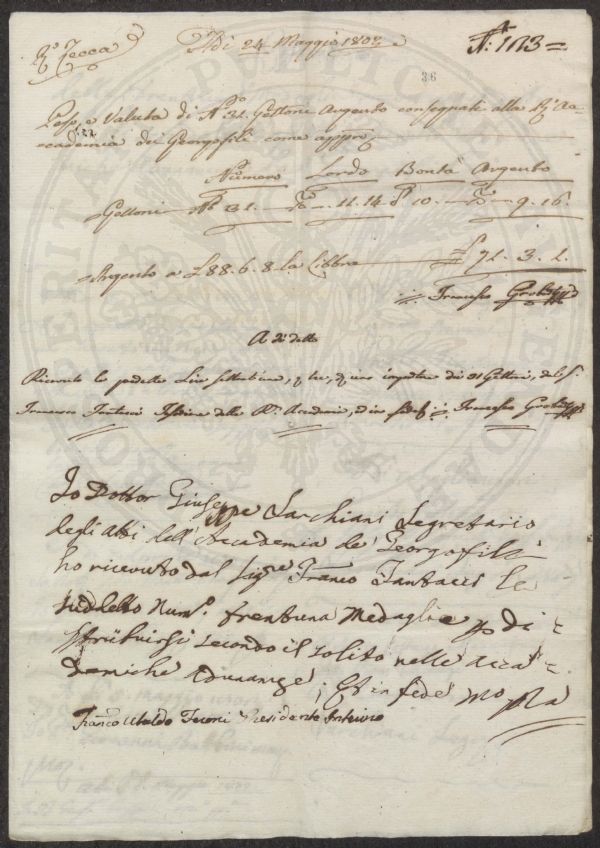 Rª Zecca
Adì 24 Maggio 1802
N. 113=
36
Peso, e Valuta di N.º 31. Gettoni Argento consegnati alla Rl. Ac-
cademia dei Georgofili come app.º
Numero Lordo Bontà Argento
Gettoni N.º 31. 11.14 10. 9.16.
Argento a £88.6.8 la Libbra £ 72. 3. 1.
Francesco
A dì detto
Ricevuto le predette Lire settantuna, di 31 Gettoni, dal S.
Francesco della R. Accademia, Francesco
Io Dottor Giuseppe Sarchiani Segretario
degli Atti dell'Accademia de Georgofili
ho ricevuto dal Sig.re Franco Fantacci le
suddette Num.º trentuna Medaglie p di=
stribuirsi secondo il solito nelle Acca=
demiche Adunanze; Et in fede Mo ppa
Franco Ubaldo Feroni Presidente Interino